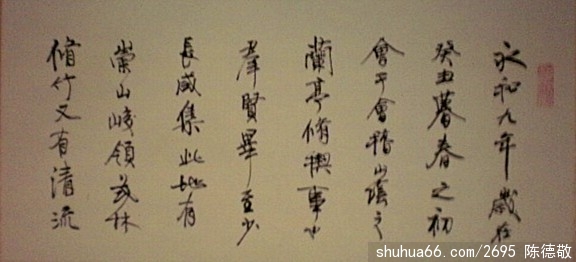 永和九年歲在
癸丑暮春之初
會于會稽山陰之
蘭亭脩禊事也
羣賢畢至少
長咸集此地有
崇山峻領茂林
脩竹又有清流
shuhua66.com/2695 陈德敬